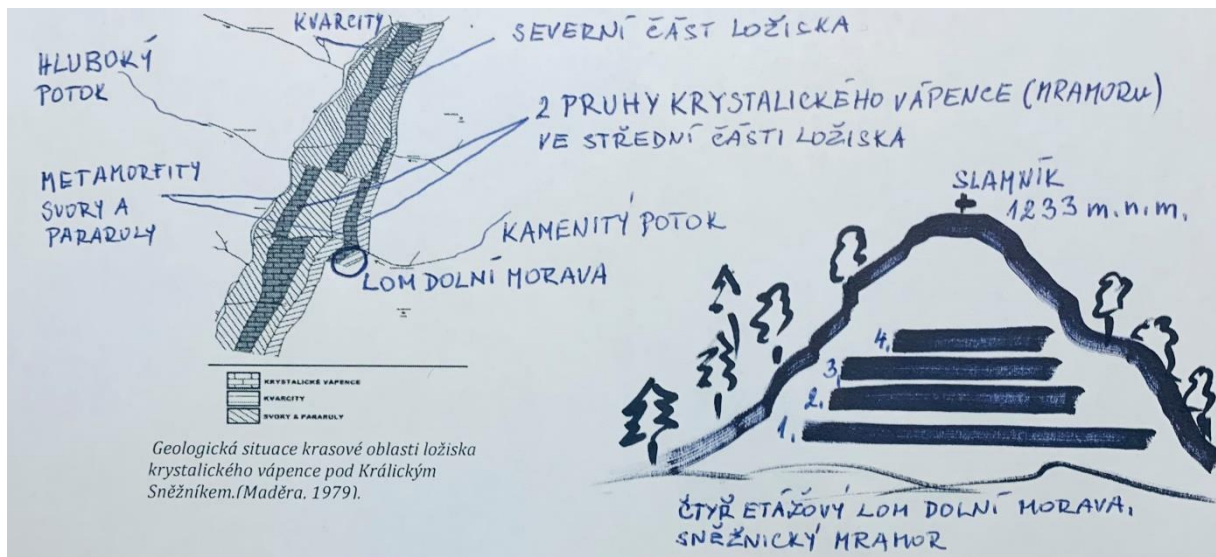 KVARCITY
SEVERNÍ ČÁST LOŽISKA
HLUBOKÝ
POTOK
2 PRUHY KRYSTALICKÉHO VÁPENCE (MRAMORU)
VE STŘEDNÍ ČÁSTI LOŽISKA
METAMORFITY
SVORY A
PARARULY
KAMENITÝ POTOK
LOM DOLNÍ MORAVA
SLAMNÍK
1233 m.n.m.
4.
3.
2.
1.
KRYSTALICKÉ VÁPENCE
KVARCITY
SVORY A PARARULY
Geologická situace krasové oblasti ložiska
krystalického vápence pod Králickým
Sněžníkem.(Maděra. 1979).
ČTYŘ ETÁŽOVÝ LOM DOLNÍ MORAVA,
SNĚŽNICKÝ MRAMOR